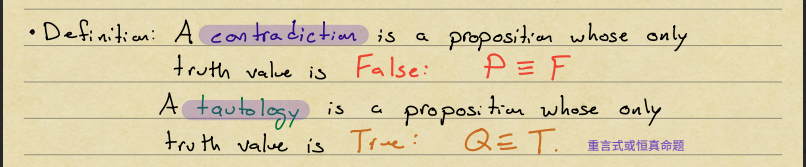 • Definition: A contradiction is a proposition whose only
truth value is False: P ≡ F
A tautology is a proposition whose only
truth value is True: Q ≡ T. 重言式或恒真命题